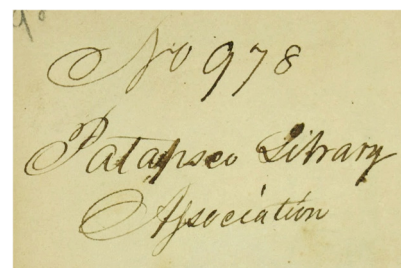 No 978
Patapsco Library
Association